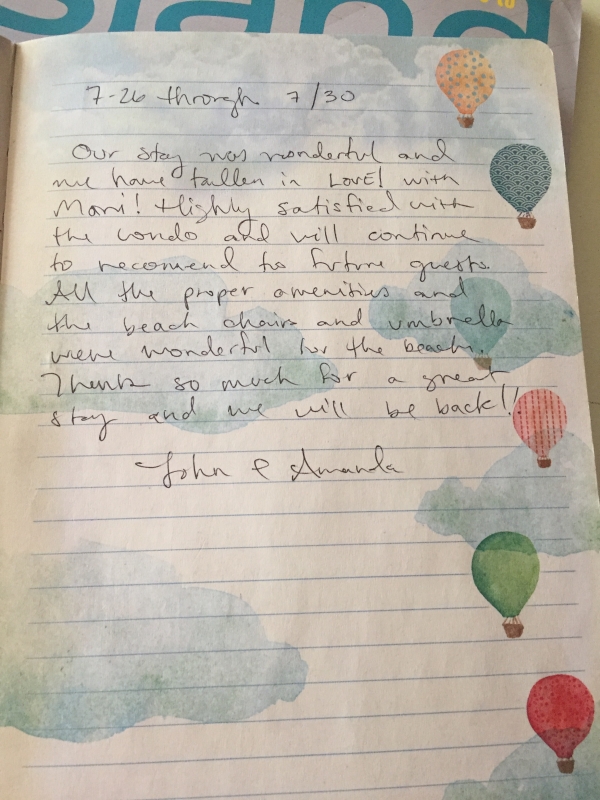 sland
to
7-26 through 7/30
Our stay was wonderful and
we have fallen in LovE! with
Maui! Highly satisfied with
the condo and will continue
to recomend to future guests.
All the proper amenities and
the beach chairs and umbrella
were wonderful for the beach.
Thanks so much for a great
stay and we will be back!!
John & Amanda